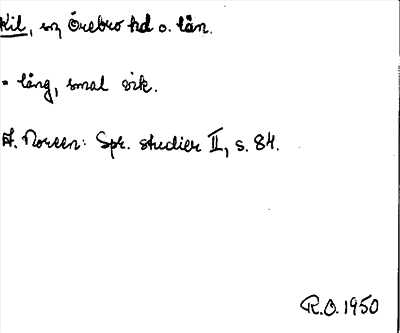 Kil, sn, Örebro hd o. län.
= lång, smal vik.
A. Noreen: Spr. studier II, s. 84.
R.O. 1950